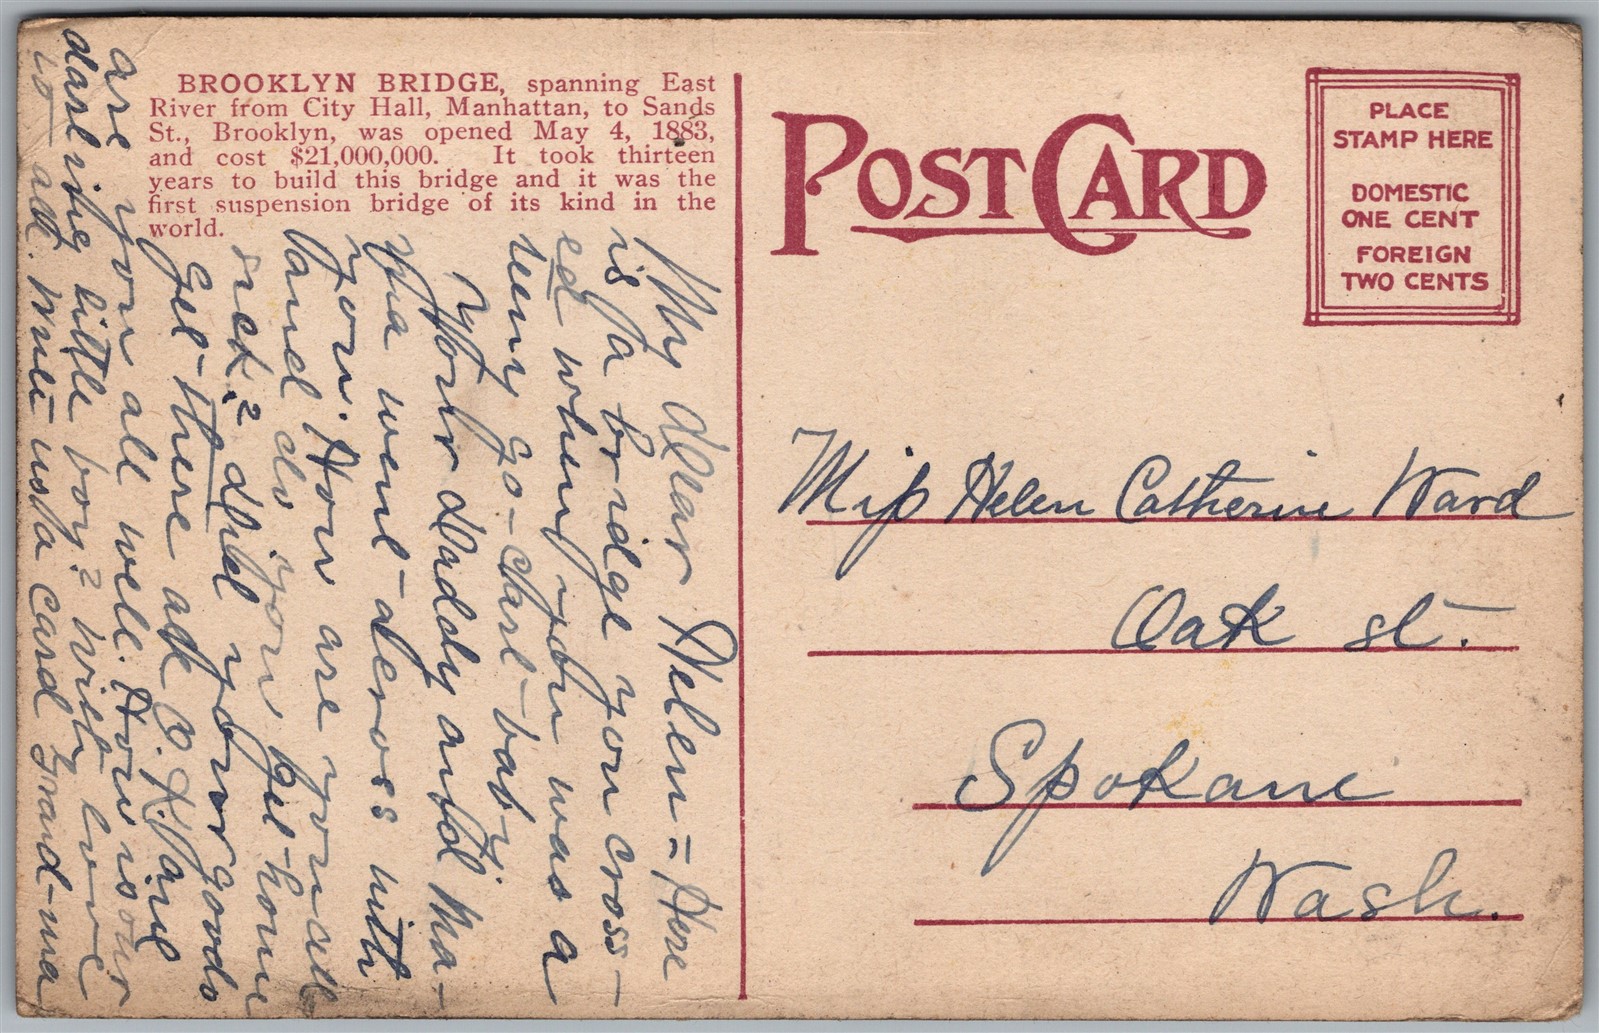 BROOKLYN BRIDGE, spanning East
River from City Hall, Manhattan, to Sands
St., Brooklyn, was opened May 4, 1883,
and cost $21,000,000. It took thirteen
years to build this bridge and it was the
first suspension bridge of its kind in the
world.
My dear Helen = Here
is a bridge you cross-
ed when you was a
teeny go-cart-baby.
Your daddy and Ma-
ma went across with
you. How are your all
and do you get home
sick? did your goods
get there all O.K. Jane
are you all well. How is our
darling little boy? with love
to all. write us a card Grand-ma
POST CARD
PLACE
STAMP HERE
DOMESTIC
ONE CENT
FOREIGN
TWO CENTS
Miss Helen Catherine Ward
Oak st.
Spokane
Wash.